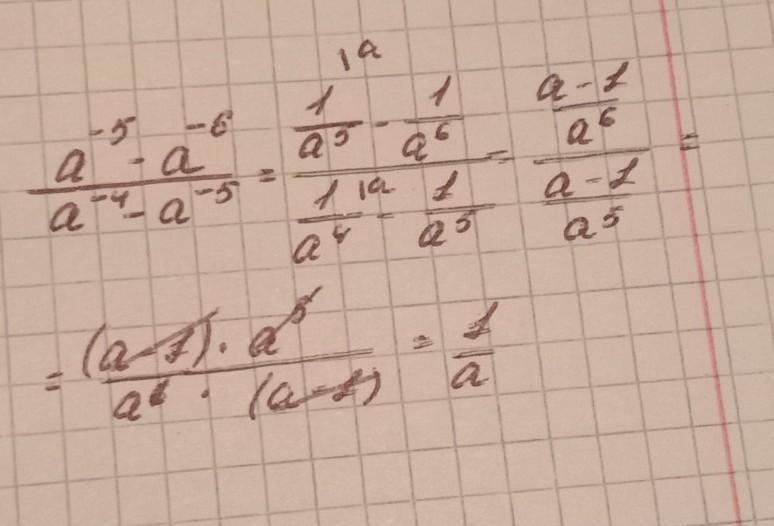 (a⁻⁵ - a⁻⁶)/(a⁻⁴ - a⁻⁵) = (1/a⁵ |a - 1/a⁶)/(1/a⁴ |a - 1/a⁵) = ((a-1)/a⁶)/((a-1)/a⁵) =
= ((a-1) · a⁵)/(a⁶ · (a-1)) = 1/a